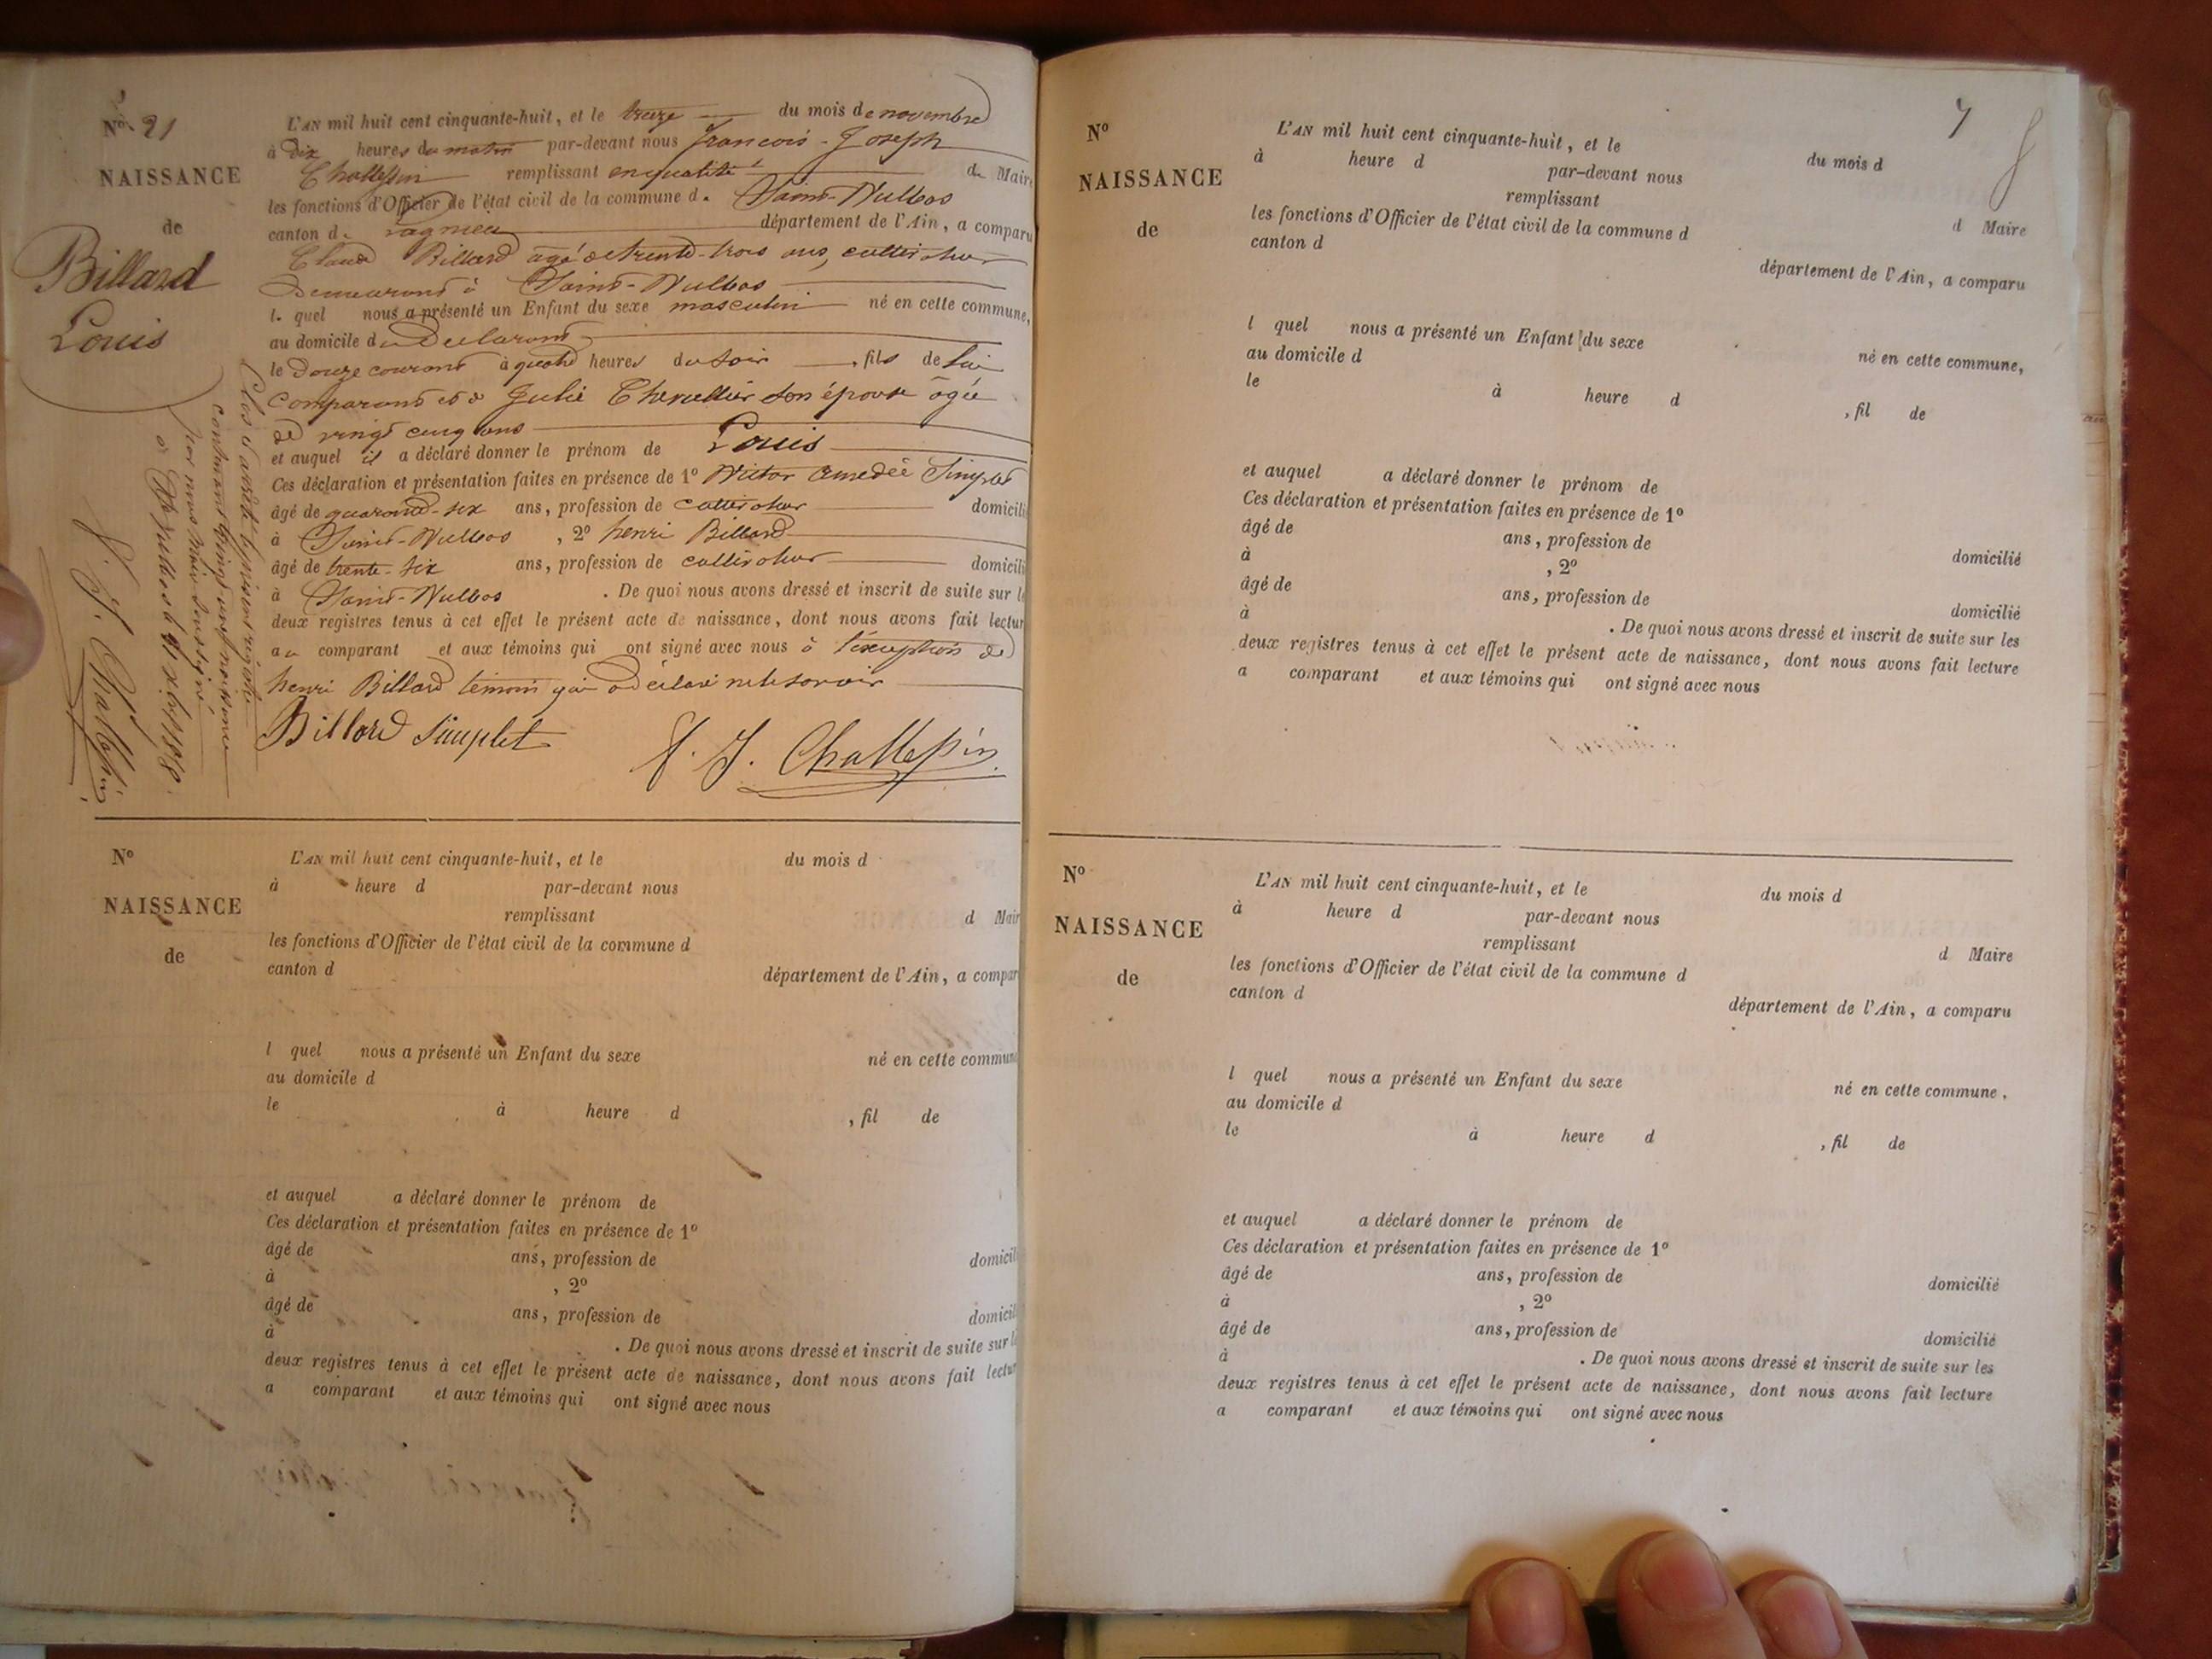 No 21
NAISSANCE
de
Billard
Louis
L'AN mil huit cent cinquante-huit, et le treize du mois de novembre
à Dix heures du matin par-devant nous françois-Joseph
Challessin remplissant en qualité du Maire
les fonctions d'Officier de l'état civil de la commune d. Saint-Vulbas
canton de Lagnieu département de l'Ain, a comparu
Claude Billard agé de trente-trois ans, cultivateur
Demeurant à Saint-Vulbas
le quel nous a présenté un Enfant du sexe masculin né en cette commune,
au domicile du Déclarant
le Douze courant à quatre heures du soir, fils de lui
Comparant et de Julie Chevallier son épouse âgée
de vingt cinq ans
et auquel il a déclaré donner le prénom de Louis
Ces déclaration et présentation faites en présence de 1º Victor Amedée Simplet
âgé de quarante-six ans, profession de cultivateur domicili
à Saint-Vulbas, 2º henri Billard
âgé de trente-six ans, profession de cultivateur domicili
à Saint-Vulbas. De quoi nous avons dressé et inscrit de suite sur le
deux registres tenus à cet effet le présent acte de naissance, dont nous avons fait lectur
au comparant et aux témoins qui ont signé avec nous à l'exception de
henri Billard témoin qui a déclaré ne le savoir
Billard Simplet F. J. Challessin
Clos et arrêté le présent registre
contenant vingt une naissance
par nous maire soussigné
à St Vulbas le 31 Xbre 1858.
F. J. Challessin
Nº
NAISSANCE
de
L'AN mil huit cent cinquante-huit, et le du mois d
à heure d par-devant nous
remplissant d Mair
les fonctions d'Officier de l'état civil de la commune d
canton d département de l'Ain, a compar
l quel nous a présenté un Enfant du sexe né en cette commun
au domicile d
le à heure d , fil de
et auquel a déclaré donner le prénom de
Ces déclaration et présentation faites en présence de 1º
âgé de ans, profession de domicil
à , 2º
âgé de ans, profession de domicil
à . De quoi nous avons dressé et inscrit de suite sur l
deux registres tenus à cet effet le présent acte de naissance, dont nous avons fait lectur
a comparant et aux témoins qui ont signé avec nous
7
Nº
NAISSANCE
de
L'AN mil huit cent cinquante-huit, et le du mois d
à heure d par-devant nous
remplissant d Maire
les fonctions d'Officier de l'état civil de la commune d
canton d département de l'Ain, a comparu
l quel nous a présenté un Enfant du sexe né en cette commune,
au domicile d
le à heure d , fil de
et auquel a déclaré donner le prénom de
Ces déclaration et présentation faites en présence de 1º
âgé de ans, profession de domicilié
à , 2º
âgé de ans, profession de domicilié
à . De quoi nous avons dressé et inscrit de suite sur les
deux registres tenus à cet effet le présent acte de naissance, dont nous avons fait lecture
a comparant et aux témoins qui ont signé avec nous
Nº
NAISSANCE
de
L'AN mil huit cent cinquante-huit, et le du mois d
à heure d par-devant nous
remplissant d Maire
les fonctions d'Officier de l'état civil de la commune d
canton d département de l'Ain, a comparu
l quel nous a présenté un Enfant du sexe né en cette commune,
au domicile d
le à heure d , fil de
et auquel a déclaré donner le prénom de
Ces déclaration et présentation faites en présence de 1º
âgé de ans, profession de domicilié
à , 2º
âgé de ans, profession de domicilié
à . De quoi nous avons dressé et inscrit de suite sur les
deux registres tenus à cet effet le présent acte de naissance, dont nous avons fait lecture
a comparant et aux témoins qui ont signé avec nous